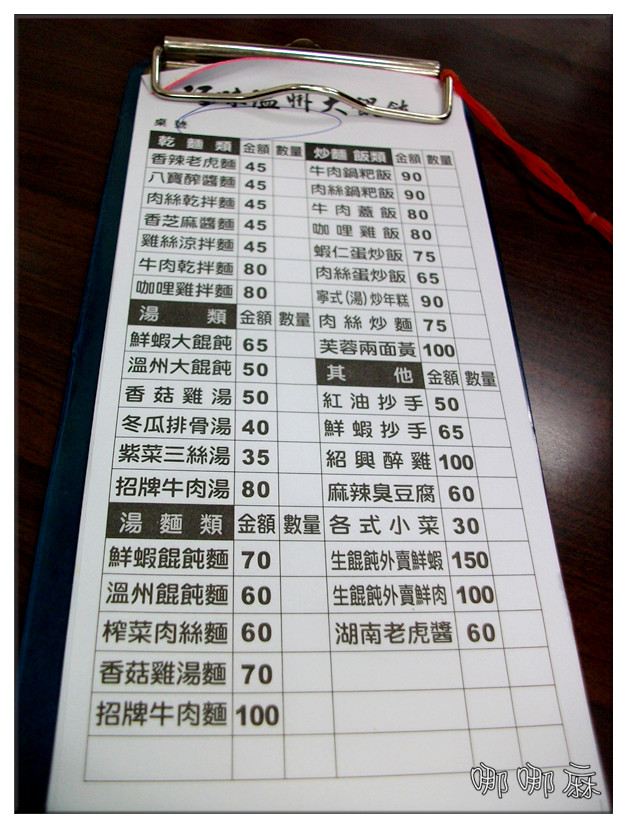 溫州大餛飩
桌號
乾麵類 金額 數量
香辣老虎麵 45
八寶醡醬麵 45
肉絲乾拌麵 45
香芝麻醬麵 45
雞絲涼拌麵 45
牛肉乾拌麵 80
咖哩雞拌麵 80
湯類 金額 數量
鮮蝦大餛飩 65
溫州大餛飩 50
香菇雞湯 50
冬瓜排骨湯 40
紫菜三絲湯 35
招牌牛肉湯 80
湯麵類 金額 數量
鮮蝦餛飩麵 70
溫州餛飩麵 60
榨菜肉絲麵 60
香菇雞湯麵 70
招牌牛肉麵 100
炒麵飯類 金額 數量
牛肉鍋粑飯 90
肉絲鍋粑飯 90
牛肉蓋飯 80
咖哩雞飯 80
蝦仁蛋炒飯 75
肉絲蛋炒飯 65
寧式(湯)炒年糕 90
肉絲炒麵 75
芙蓉兩面黃 100
其他 金額 數量
紅油抄手 50
鮮蝦抄手 65
紹興醉雞 100
麻辣臭豆腐 60
各式小菜 30
生餛飩外賣鮮蝦 150
生餛飩外賣鮮肉 100
湖南老虎醬 60
哪哪麻